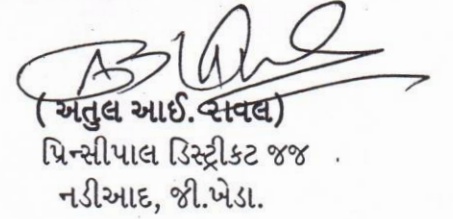 (અતુલ આઈ. રાવલ)
પ્રિન્સીપાલ ડિસ્ટ્રીકટ જજ .
નડીઆદ, જી.ખેડા.